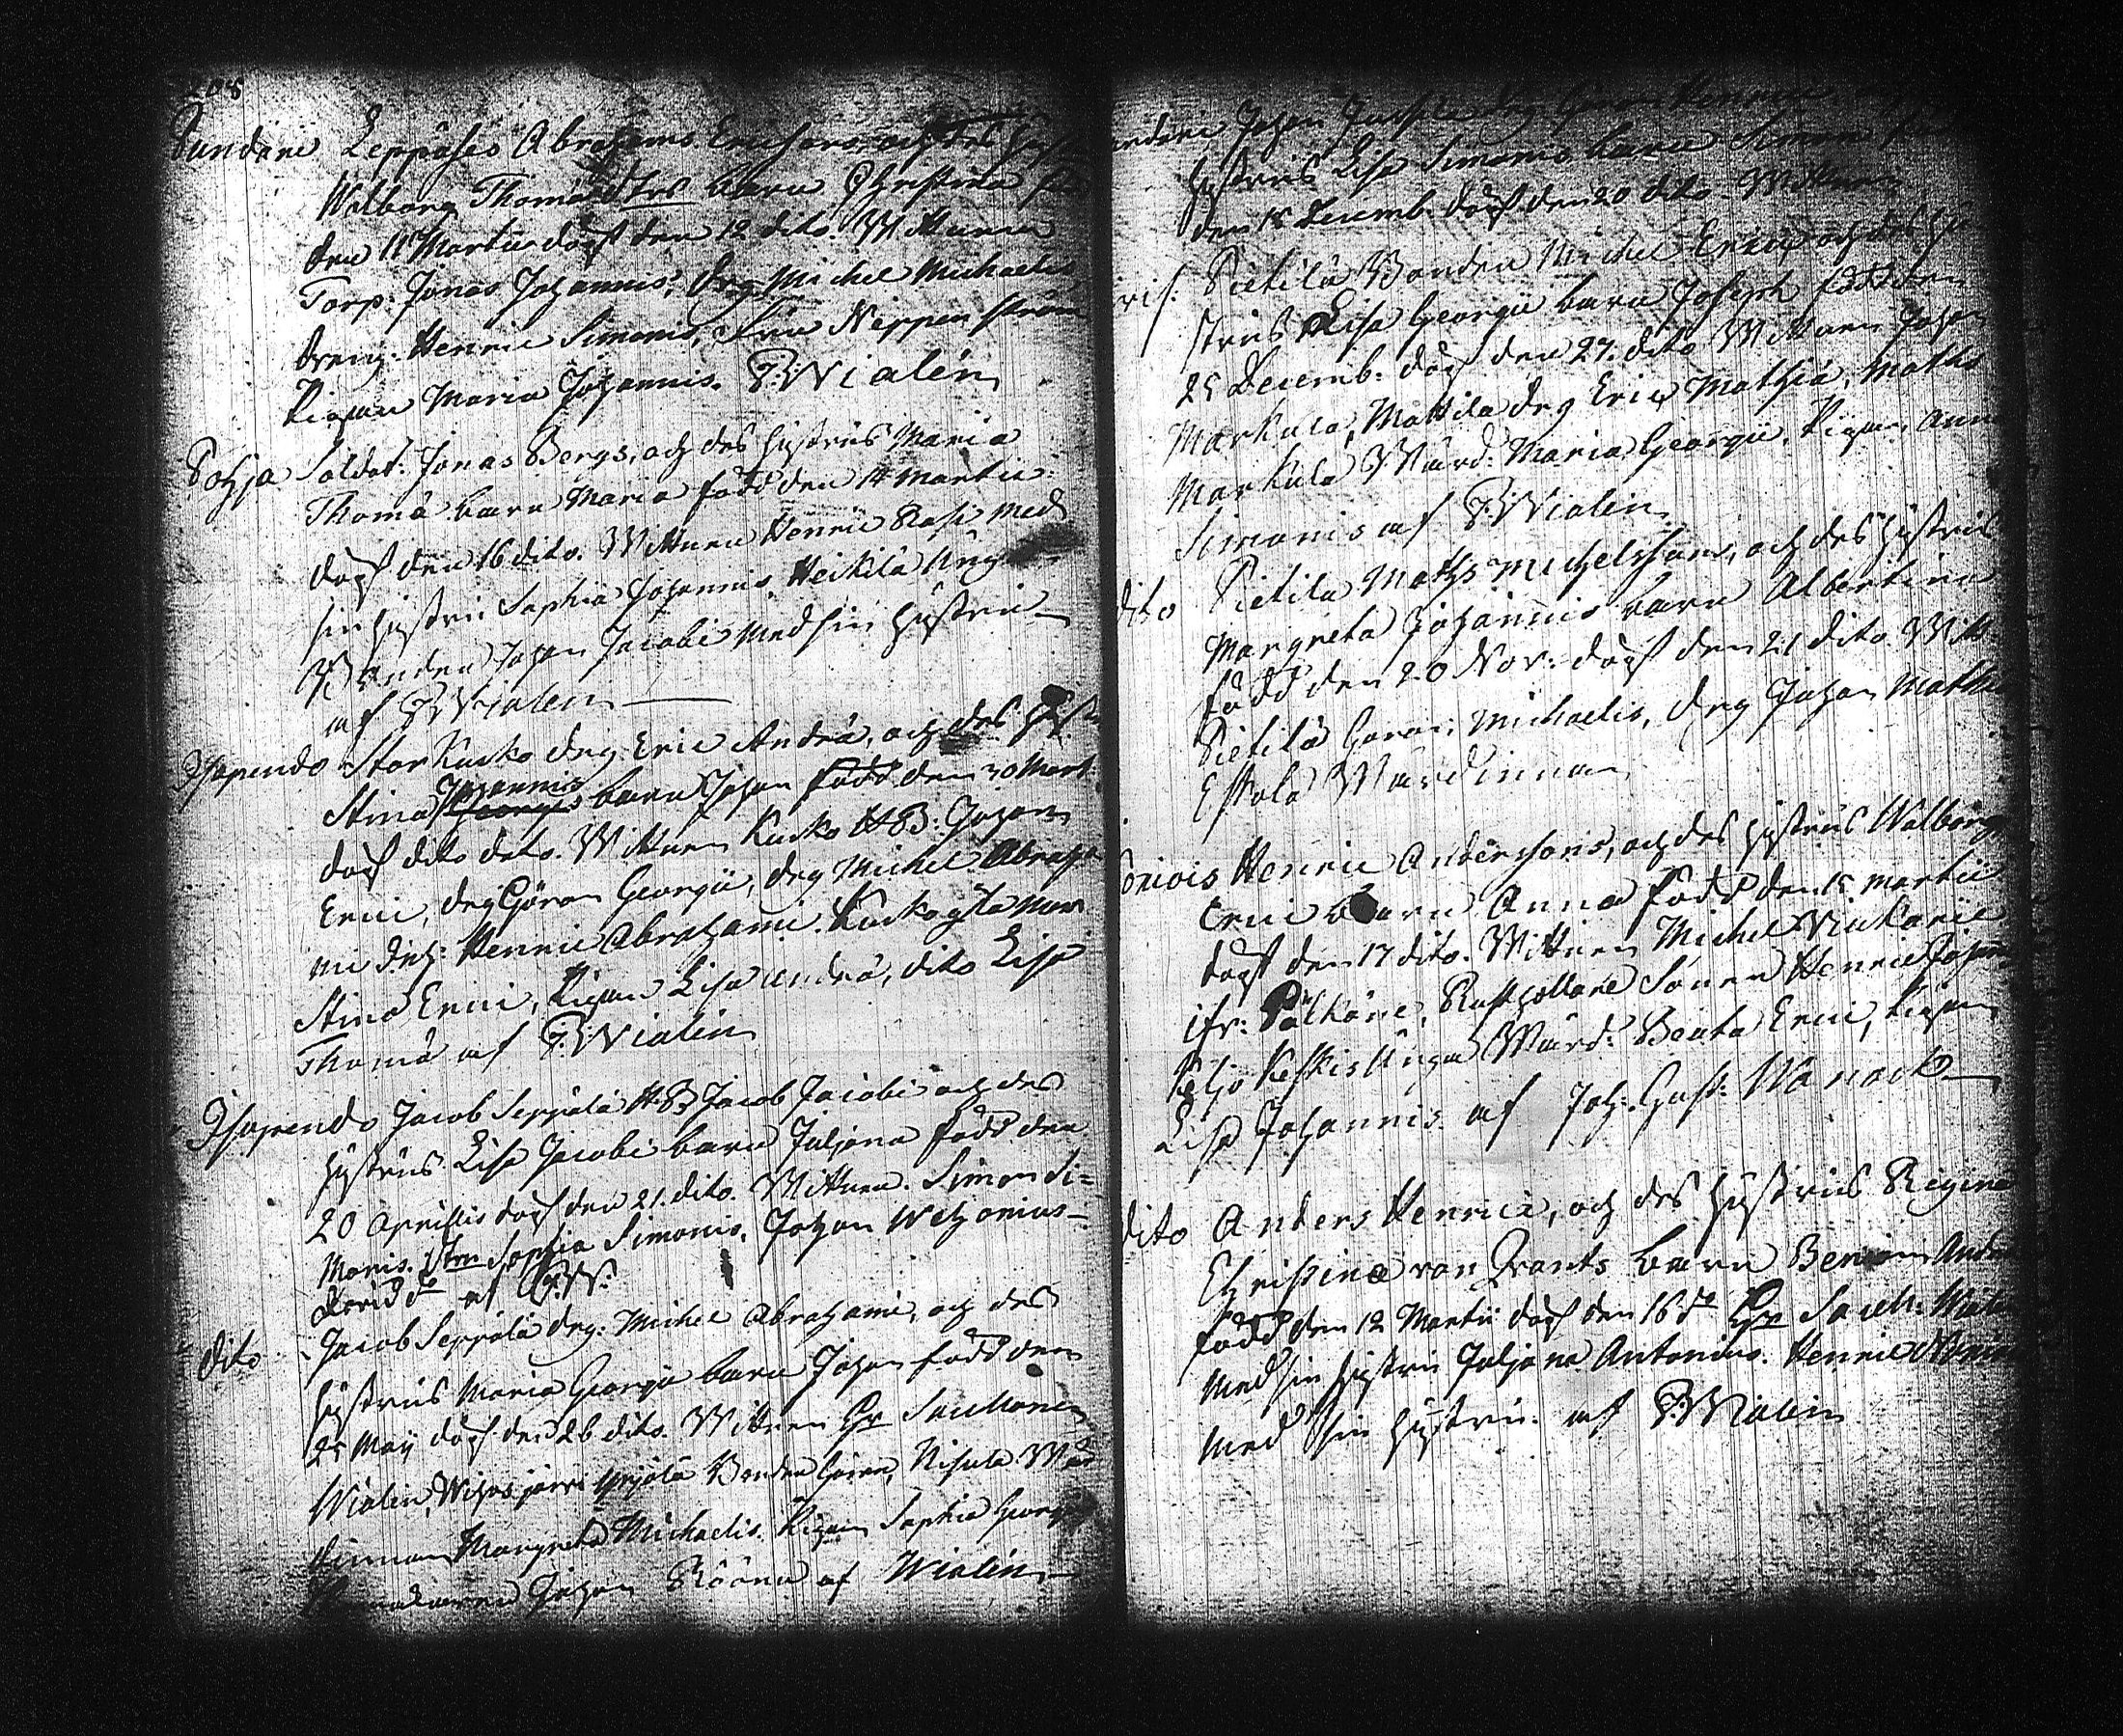 208
Sundani Leppäses Abrahams Ericssons, och des hust
Walborg Thomä Dtrs barn Christina
den 11 Martii döpt den 12 dito. Wittnen
Torp: Jonas Johannis, drg Michel Michaelis
dreng: Henric Simonis, Fru Neppenström
Pigan Maria Johannis. P:Wialén
Pohja Soldat: Jonas Bergs, och des hustrus Maria
Thomä barn Maria född den 14 Martii
döpt den 16 dito. Wittnen Henric Rasi med
sin hustru Sophia Johannis, Heikilä Unga
Bonden Johan Jacobi med sin hustru
af P:Wialen
Isopendo Stor Kusko drg Eric Andrä, och des hust
Johannis
Stina barn Johan född den 30 Mart
döpt dito dato. Wittnen Kusko HB: Johan
Erici, drg Göran Georgii, drg Michel Abraha
mi drg: Henric Abrahami. Kusko gla mor
Stina Erici, Pigan Lisa Andrä, dito Lisa
Thomä af P:Wialin
Isopendo Jacob Seppälä HB Jacob Jacobi och des
hustrus Lisa Jacobi barn Juljana född den
20 Aprillis döpt den 21. dito. Wittnen. Simon Si=
monis. Sophia Simonis. Johan Wehonius
af P:W:
dito Jacob Seppälä drg: Michel Abrahami, och des
hustrus Maria Georgii barn Johan född den
25 Maij döpt den 26 dito. Wittnen Hr Sacellanen
Wialin, Wihasjärvi Yrjölä Bonden Göran, Nisula Wär
dinnan Margreta Michaelis. Pigan Sophia Georgii
Johan Röönn af Wialén
Johan drg: Göran Henrici
hustrus Lisa Simonis barn Simon
den 18 Decemb. döpt den 20 dito. Wittnen
Pietilä Bonden Michel Erici, och des hu
strus Lisa Georgii barn Joseph född den
25 Decemb: döpt den 27. dito Wittnen Johan
Markula, Mattila drg Eric Mathiä, Maths
Markula Wärd: Maria Georgii. Pigan Anna
Simonis af P:Wialin
dito Pietilä Maths Michelssons, och des hustrus
Margreta Johannis barn Albertina
född den 20 Nov: döpt den 21 dito. Witt
Pietilä Göran Michaelis, drg Johan Mathiä
Eskola Wärdinnan
Henric Anderssons, och des hustrus Walborg
Erici barn Anna född den 15 Martii
döpt den 17 dito. Wittnen Michel Wickarie
ifr: Pälkäne, Rusthollare Sonen Henric Johan
Keljo Keskis Unga Wärd: Beata Erici, Pigan
Lisa Johannis. af Joh: Gust: Wanaek
dito Anders Henrici, och des hustrus Regina
Christina von Qvants barn Beniam Andr
född den 12 Martii döpt den 16 do Hr Sacell: Wiali
med sin hustru Juljana Antonius. Henric
med sin hustru. af P:Wialin